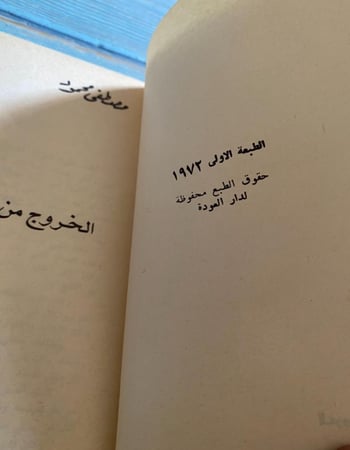 الطبعة الاولى ١٩٧٣
حقوق الطبع محفوظة
لدار العودة
مصطفى محمود
الخروج من